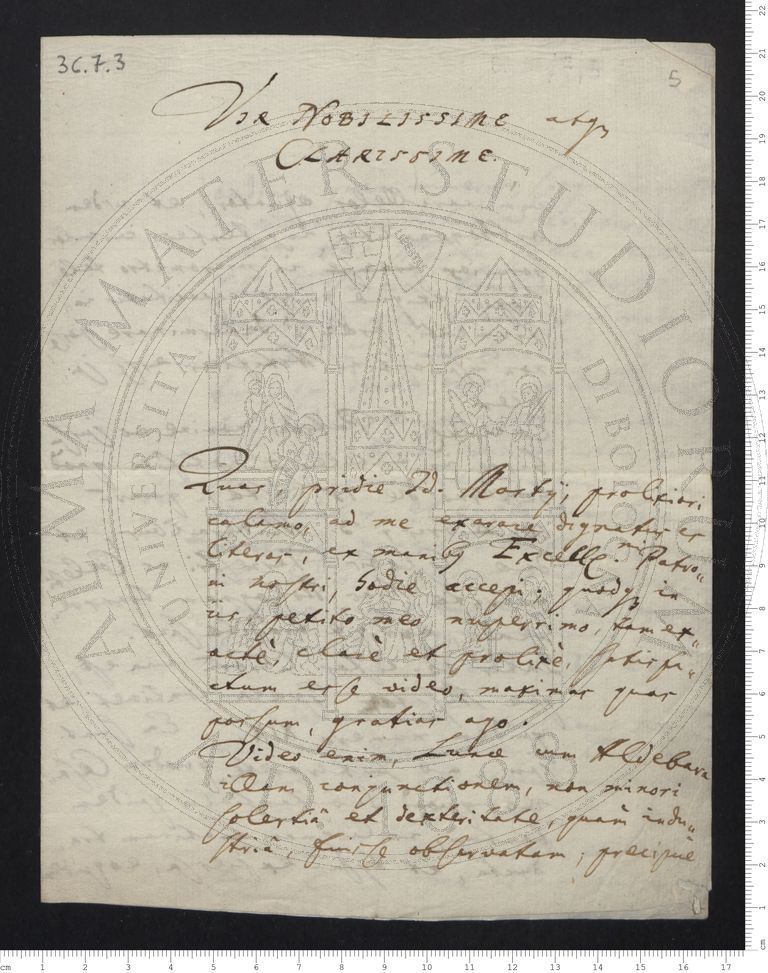 36.7.3
5
VIR NOBILISSIME atq3
CLARISSIME.
Quas, pridie Id. Martÿ, prolixiori
calamo, ad me exarare dignatus es
literas, ex manib9 Excellmi. Patro„
ni nostri, hodie accepi; quodq3 in
iis, petito meo nuperrimo, tam ex„
actè, clarè et prolixè, satisfa„
ctum esse video, maximas quas
possum, gratias ago.
Video enim, Lunæ cum Aldebara
illam conjunctionem, non minori
solertiâ et dexteritate, quàm indu„
striâ, fuisse observatam; precipuè
ALMA MATER STUDIORUM
UNIVERSITA DI BOLOGNA
A.D. 1088